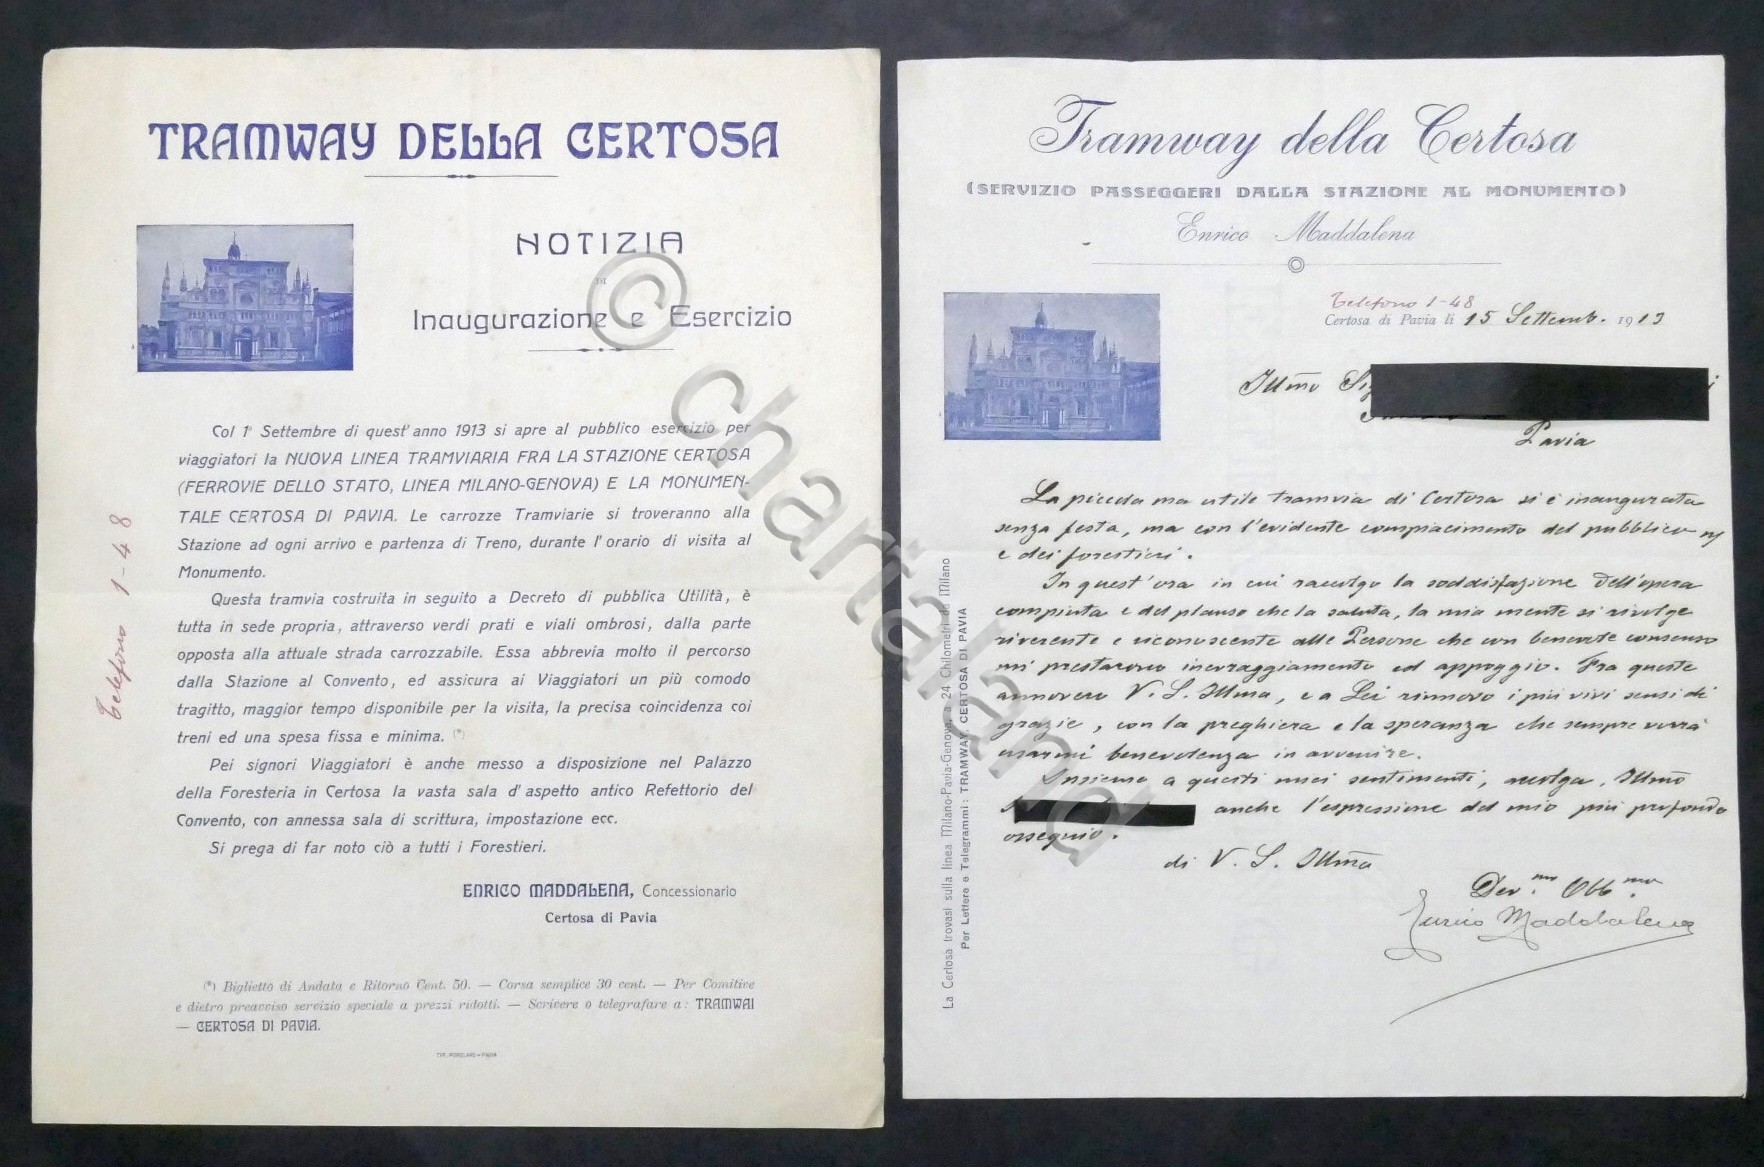 TRAMWAY DELLA CERTOSA
NOTIZIA
DI
Inaugurazione e Esercizio
Col 1° Settembre di quest'anno 1913 si apre al pubblico esercizio per
viaggiatori la NUOVA LINEA TRAMVIARIA FRA LA STAZIONE CERTOSA
(FERROVIE DELLO STATO, LINEA MILANO-GENOVA) E LA MONUMEN-
TALE CERTOSA DI PAVIA. Le carrozze Tramviarie si troveranno alla
Stazione ad ogni arrivo e partenza di Treno, durante l'orario di visita al
Monumento.
Questa tramvia costruita in seguito a Decreto di pubblica Utilità, è
tutta in sede propria, attraverso verdi prati e viali ombrosi, dalla parte
opposta alla attuale strada carrozzabile. Essa abbrevia molto il percorso
dalla Stazione al Convento, ed assicura ai Viaggiatori un più comodo
tragitto, maggior tempo disponibile per la visita, la precisa coincidenza coi
treni ed una spesa fissa e minima. (*)
Pei signori Viaggiatori è anche messo a disposizione nel Palazzo
della Foresteria in Certosa la vasta sala d'aspetto antico Refettorio del
Convento, con annessa sala di scrittura, impostazione ecc.
Si prega di far noto ciò a tutti i Forestieri.
ENRICO MADDALENA, Concessionario
Certosa di Pavia
(*) Biglietto di Andata e Ritorno Cent. 50. — Corsa semplice 30 cent. — Per Comitive
e dietro preavviso servizio speciale a prezzi ridotti. — Scrivere o telegrafare a: TRAMWAI
— CERTOSA DI PAVIA.
Telefono 1-48
Tramway della Certosa
(SERVIZIO PASSEGGERI DALLA STAZIONE AL MONUMENTO)
Enrico Maddalena
Telefono 1-48
Certosa di Pavia li 15 Settemb. 1913
Illmo
Pavia
La piccola ma utile tramvia di Certosa si è inaugurata
senza festa, ma con l'evidente compiacimento del pubblico
e dei forestieri.
In quest'ora in cui raccolgo la soddisfazione dell'opera
compiuta e del plauso che la saluta, la mia mente si rivolge
riverente e riconoscente alle Persone che con benevole consenso
mi prestarono incoraggiamento ed appoggio. Fra queste
annovero V. S. Illma, e a Lei rinnovo i più vivi sensi di
grazie, con la preghiera e la speranza che sempre vorrà
usarmi benevolenza in avvenire.
Insieme a questi miei sentimenti, accolga, Illmo
anche l'espressione del mio più profondo
ossequio.
di V. S. Illma
Dev.mo Obb.mo
Enrico Maddalena
La Certosa trovasi sulla linea Milano-Pavia-Genova, a 24 Chilometri da Milano
Per Lettere e Telegrammi: TRAMWAY, CERTOSA DI PAVIA
© chartaland